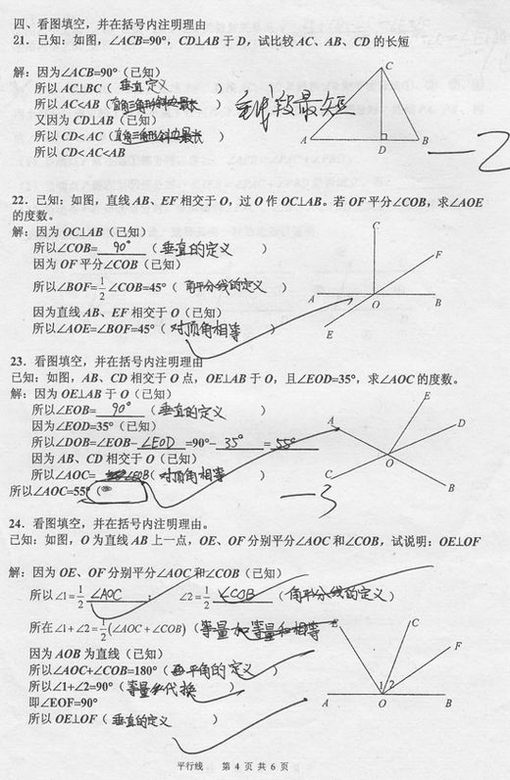 四、看图填空，并在括号内注明理由
21．已知：如图，∠ACB=90°，CD⊥AB 于 D，试比较 AC、AB、CD 的长短
解：因为∠ACB=90°（已知）
所以 AC⊥BC（ 垂直定义 ）
所以 AC<AB（直角三角形斜边最长） 垂线段最短
又因为 CD⊥AB（已知）
所以 CD<AC（直角三角形斜边最长）
所以 CD<AC<AB
C
A
D
B
—2
22．已知：如图，直线 AB、EF 相交于 O，过 O 作 OC⊥AB。若 OF 平分∠COB，求∠AOE
的度数。
解：因为 OC⊥AB（已知）
所以∠COB= 90° （垂直的定义 ）
因为 OF 平分∠COB（已知）
所以∠BOF=1/2∠COB=45°（ 角平分线的定义 ）
因为直线 AB、EF 相交于 O（已知）
所以∠AOE=∠BOF=45°（ 对顶角相等 ）
C
F
A
O
B
E
23．看图填空，并在括号内注明理由
已知：如图，AB、CD 相交于 O 点，OE⊥AB 于 O，且∠EOD=35°，求∠AOC 的度数。
解：因为 OE⊥AB 于 O（已知）
所以∠EOB= 90° （垂直的定义 ）
因为∠EOD=35°（已知）
所以∠DOB=∠EOB−∠EOD=90°− 35° = 55°
因为 AB、CD 相交于 O（已知）
所以∠AOC= （对顶角相等 ）
所以∠AOC=55°
E
A
D
O
C
B
—3
24．看图填空，并在括号内注明理由。
已知：如图，O 为直线 AB 上一点，OE、OF 分别平分∠AOC 和∠COB，试说明：OE⊥OF
解：因为 OE、OF 分别平分∠AOC 和∠COB（已知）
所以∠1=1/2 ∠AOC ； ∠2=1/2 ∠COB （角平分线的定义）
所在∠1+∠2=1/2(∠AOC+∠COB)（等量加等量和相等
因为 AOB 为直线（已知）
所以∠AOC+∠COB=180°（ 平角的定义 ）
所以∠1+∠2=90°（等量代换 ）
即∠EOF=90°
所以 OE⊥OF（ 垂直的定义 ）
E
C
F
1
2
A
O
B
平行线 第 4 页 共 6 页